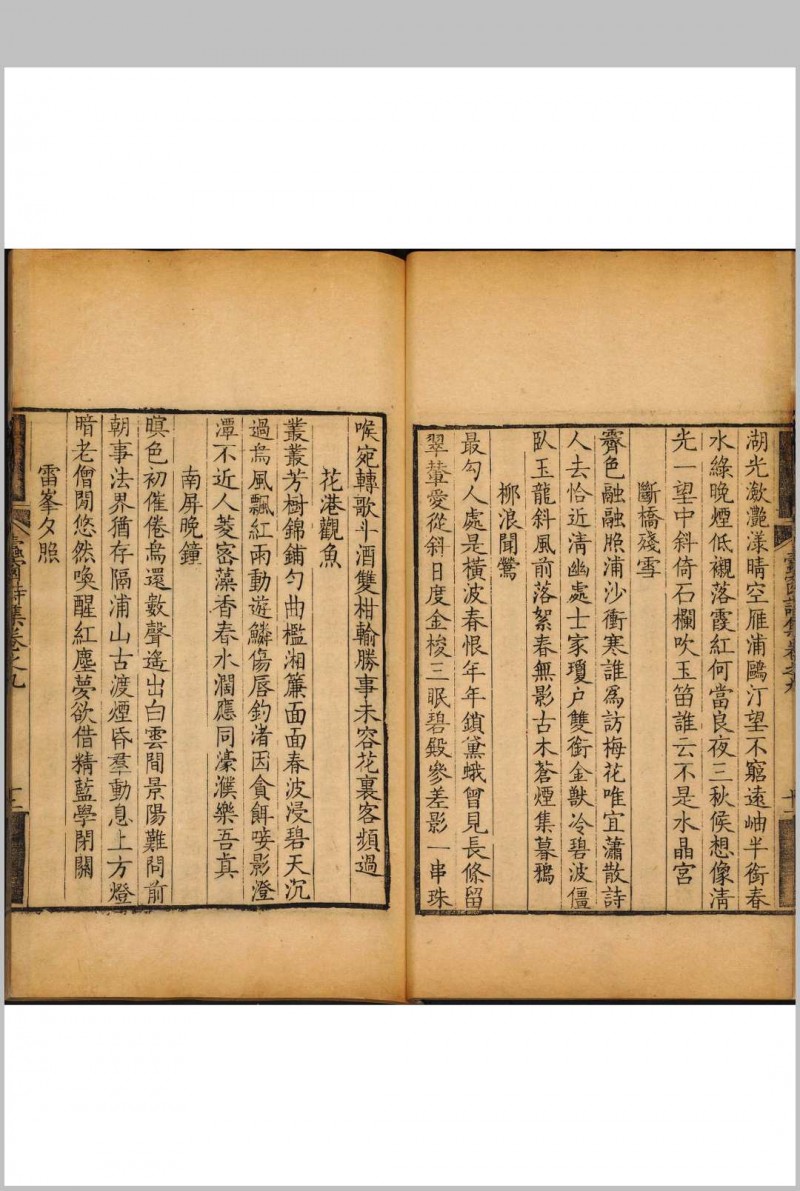 湖光瀲灧漾晴空雁浦鷗汀望不窮遠岫半銜春
水綠晚煙低襯落霞紅何當良夜三秋候想像淸
光一望中斜倚石欄吹玉笛誰云不是水晶宮
斷橋殘雪
霽色融融照浦沙衝寒誰爲訪梅花唯宜蕭散詩
人去恰近淸幽處士家瓊户雙銜金獸冷碧波僵
臥玉龍斜風前落絮春無影古木蒼煙集暮鴉
柳浪聞鶯
最勾人處是橫波春恨年年鎖黛蛾曾見長條留
翠輦愛從斜日度金梭三眠碧毿參差影一串珠
喉宛轉歌斗酒雙柑輸勝事未容花裏客頻過
花港觀魚
叢叢芳樹錦鋪勻曲檻湘簾面面春波浸碧天沉
過鳥風飄紅雨動遊鱗傷唇釣渚因貪餌唼影澄
潭不近人菱窗藻香春水濶應同濠濮樂吾眞
南屏晚鐘
暝色初催倦鳥還數聲遙出白雲間景陽難問前
朝事法界猶存隔浦山古渡煙昏羣動息上方燈
暗老僧閒悠然喚醒紅塵夢欲借精藍學閉關
雷峯夕照
詩集卷之九